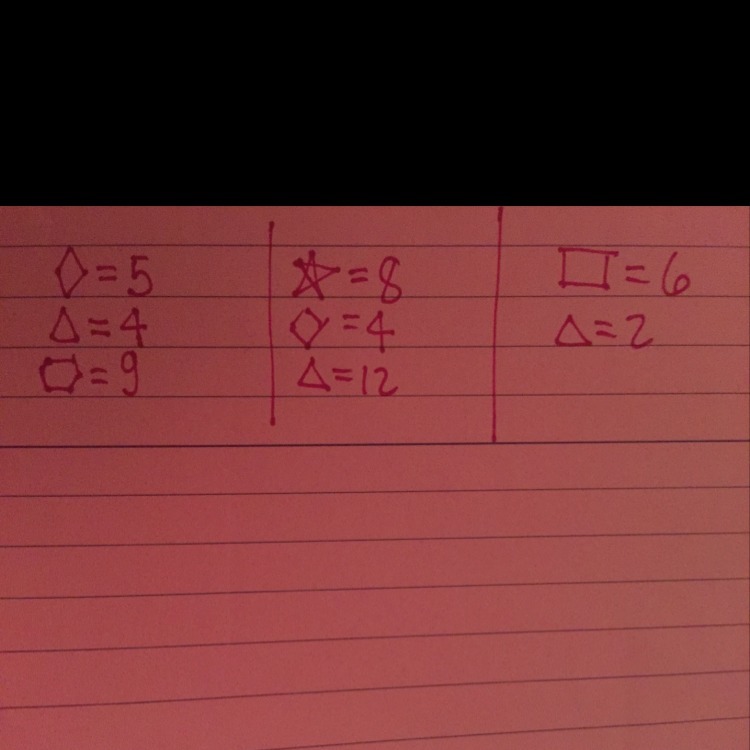 ◊ = 5
△ = 4
⬡ = 9
☆ = 8
◇ = 4
△ = 12
▭ = 6
△ = 2